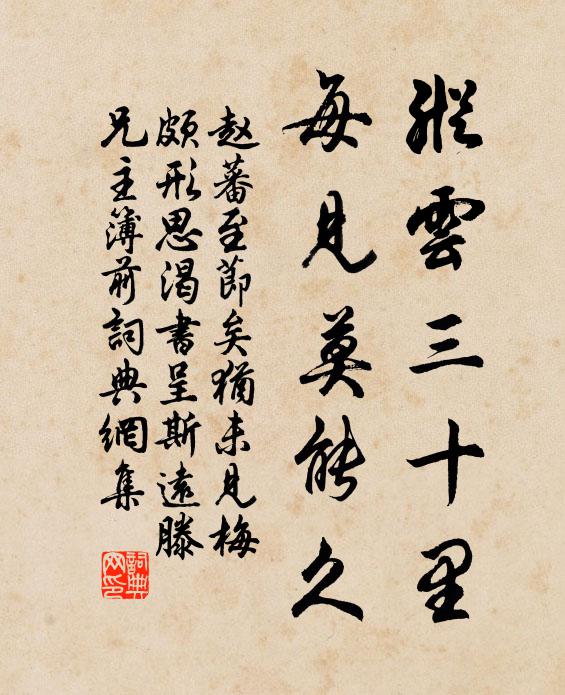 縱雲三十里
每見莫能久
赵蕃至節矣猶未見梅
頗形思渴書呈斯遠滕
兄主簿前詞典網集
詞典
网印